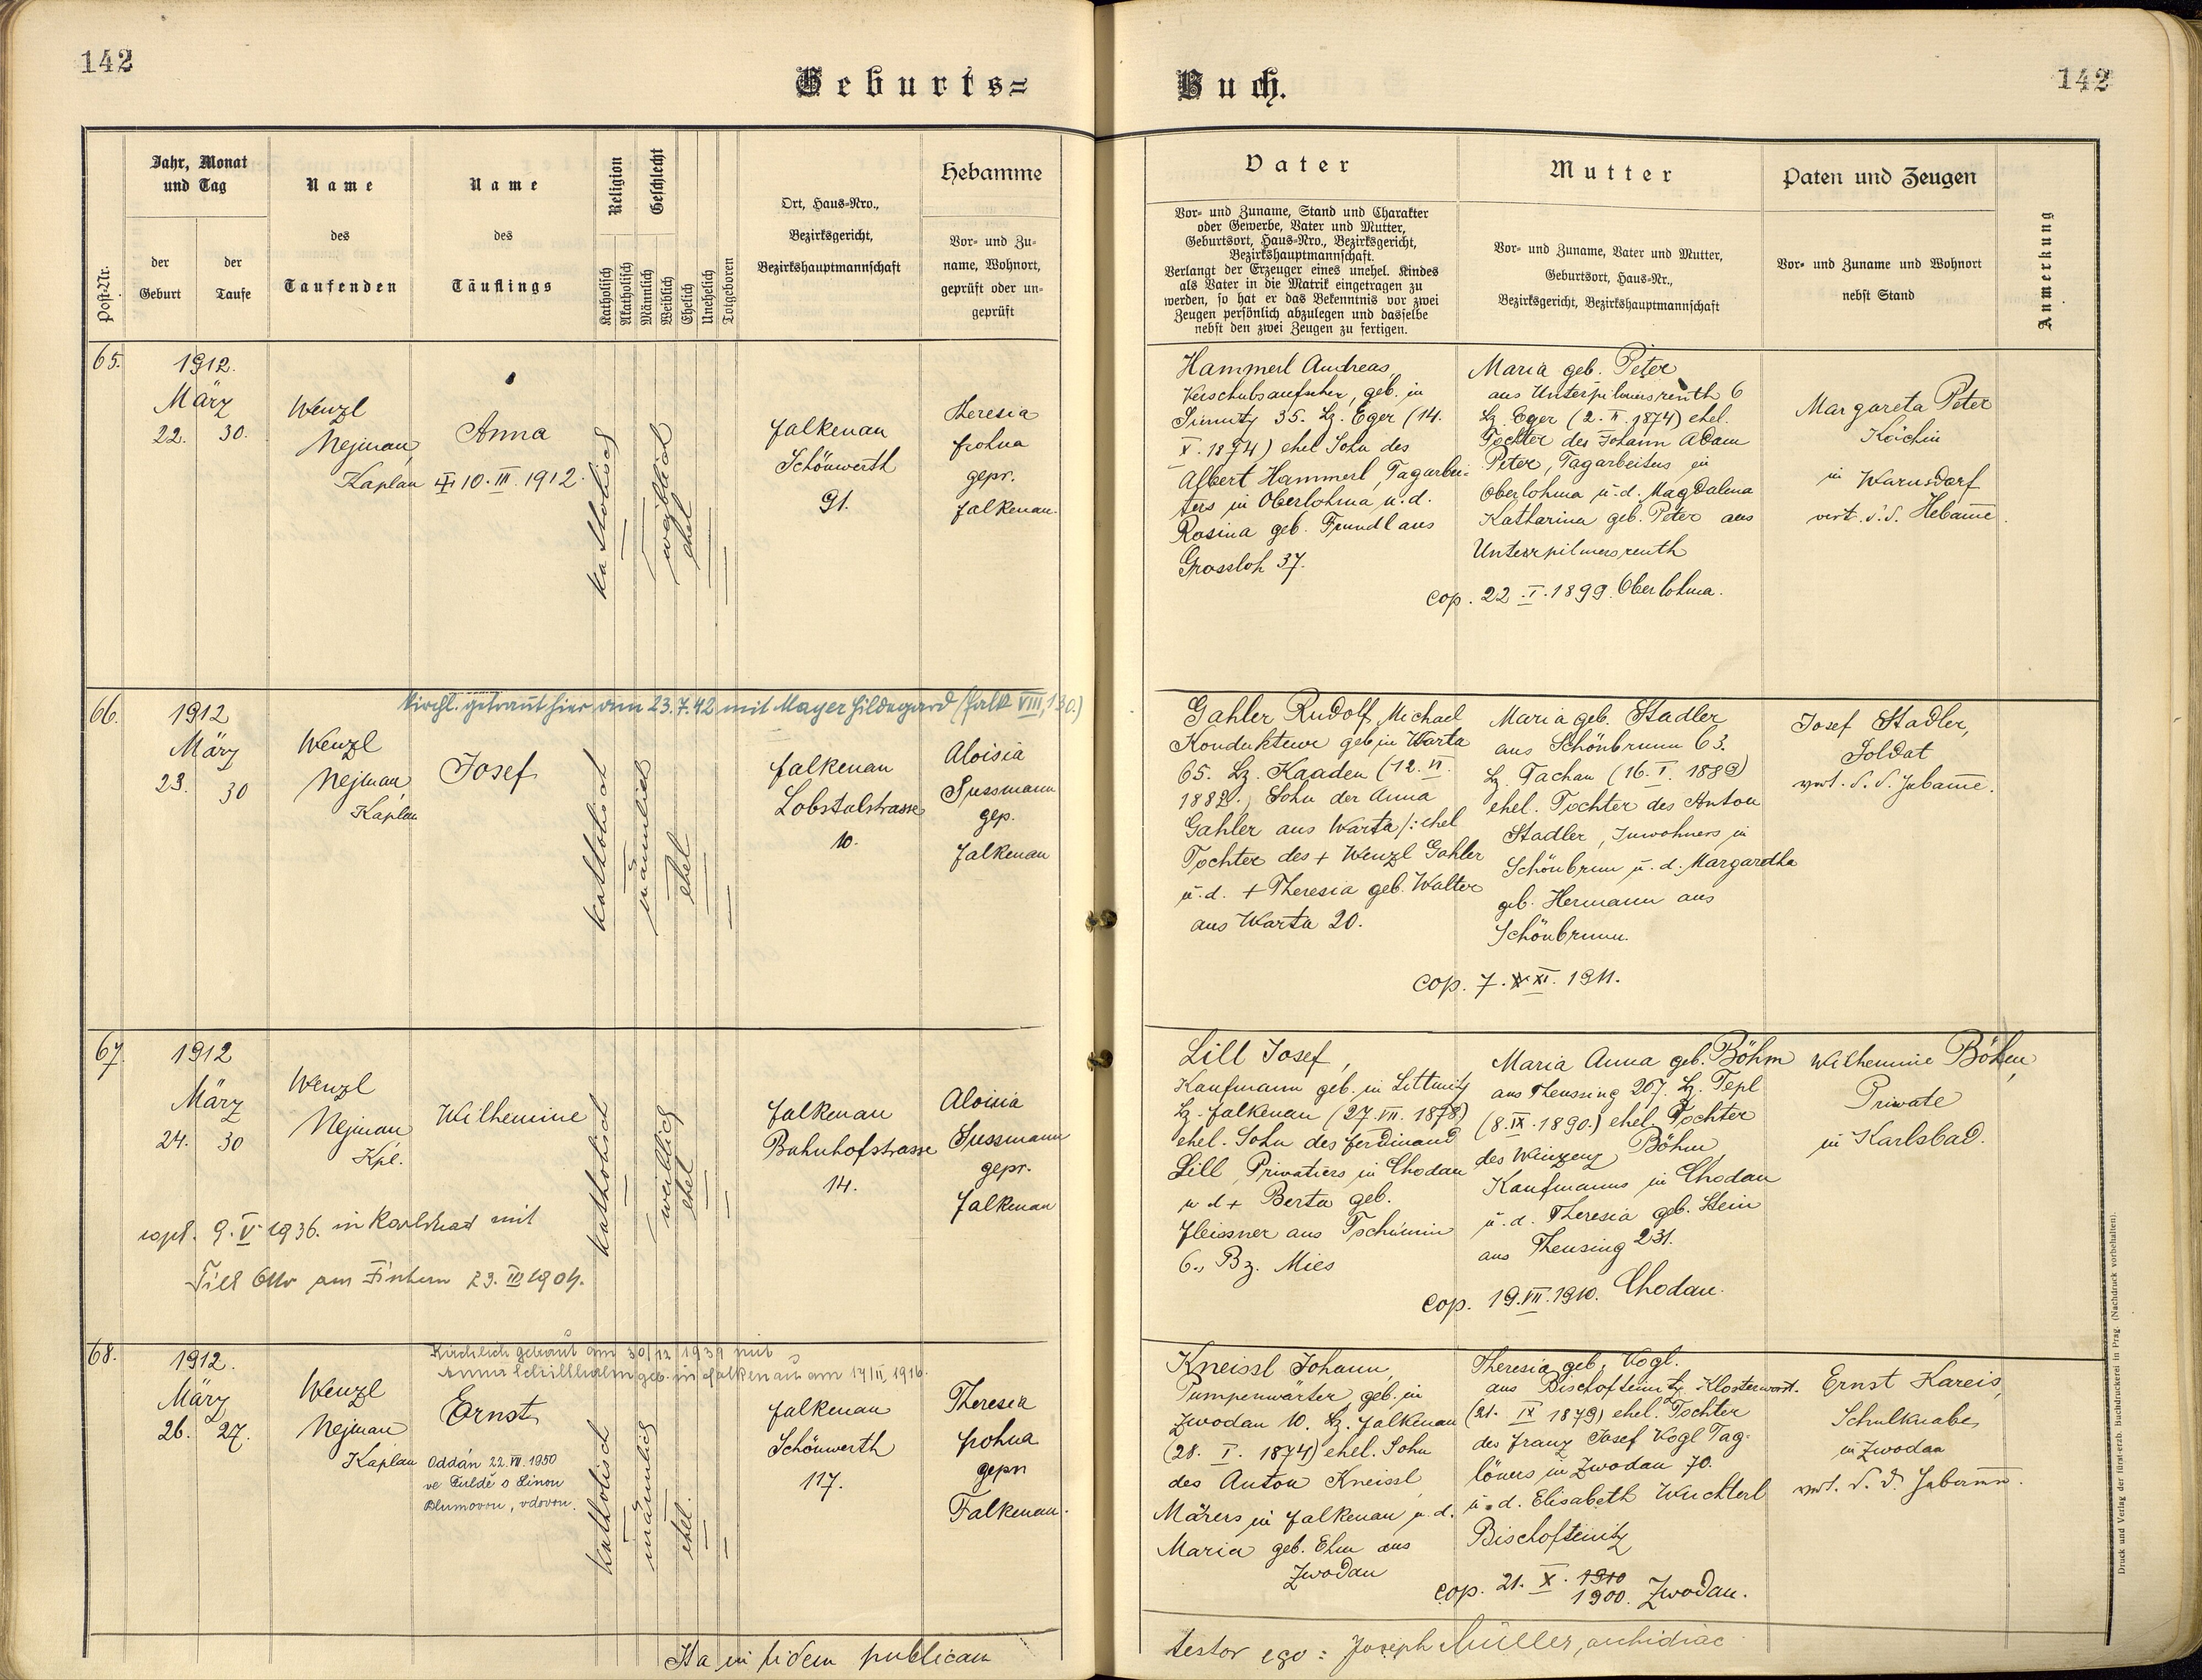 142
Geburts=
Buch.
142
Post-Nr.
Jahr, Monat
und Tag
der
Geburt
der
Taufe
Name
des
Taufenden
Name
des
Täuflings
Religion
Katholisch
Akatholisch
Geschlecht
Männlich
Weiblich
Ehelich
Unehelich
Totgeboren
Ort, Haus-Nro.,
Bezirksgericht,
Bezirkshauptmannschaft
Hebamme
Vor- und Zu-
name, Wohnort,
geprüft oder un-
geprüft
Vater
Vor- und Zuname, Stand und Charakter
oder Gewerbe, Vater und Mutter,
Geburtsort, Haus-Nro., Bezirksgericht,
Bezirkshauptmannschaft.
Verlangt der Erzeuger eines unehel. Kindes
als Vater in die Matrik eingetragen zu
werden, so hat er das Bekenntnis vor zwei
Zeugen persönlich abzulegen und dasselbe
nebst den zwei Zeugen zu fertigen.
Mutter
Vor- und Zuname, Vater und Mutter,
Geburtsort, Haus-Nr.,
Bezirksgericht, Bezirkshauptmannschaft
Paten und Zeugen
Vor- und Zuname und Wohnort
nebst Stand
Anmerkung
65.
1912.
März
22. 30.
Wenzl
Nejman,
Kaplan
Anna
10. III. 1912.
katholisch
weiblich
ehel
Falkenau
Schönwerth
91.
Theresia
Frohna
gepr.
Falkenau.
Hammerl Andreas,
Verschubsaufseher, geb. in
35. Bz. Eger (14.
X. 1874) ehel Sohn des
Albert Hammerl, Tagarbei-
ters in Oberlohma u. d.
Rosina geb. Frundl aus
Grossloh 37.
Maria geb. Peter
aus Unterpilmersreuth 6
Bz. Eger (2. II. 1874) ehel.
Tochter des Johann Adam
Peter, Tagarbeiters in
Oberlohma u. d. Magdalena
Katharina geb. Peter aus
Unterpilmersreuth
cop. 22. I. 1899. Oberlohma.
Margareta Peter
Köchin
in Warnsdorf
vert. d. d. Hebamme.
66.
Kirchl. getraut hier am 23.7.42 mit Mayer Hildegard (Falk VIII, 130.)
1912
März
23. 30
Wenzl
Nejman,
Kaplan
Josef
katholisch
männlich
ehel
Falkenau
Lobstalstrasse
10.
Aloisia
Sussmann
gep.
Falkenau
Gahler Rudolf, Michael
Kondukteur geb in Warta
65. Bz. Kaaden (12. VI.
1882.) Sohn der Anna
Gahler aus Warta /: ehel
Tochter des + Wenzl Gahler
u. d. + Theresia geb. Walter
aus Warta 20.
Maria geb. Stadler
aus Schönbrunn 63.
Bz. Tachau (16. I. 1889)
ehel. Tochter des Anton
Stadler, Inwohners in
Schönbrunn u. d. Margaretha
geb. Hermann aus
Schönbrunn.
cop. 7. XI. 1911.
Josef Stadler,
Soldat
vert. d. d. Hebamme.
67.
1912
März
24. 30
Wenzl
Nejman
Kpl.
Wilhemine
copl. 9. V. 1936. in Karlsbad mit
Till Otto aus 23. III 1904.
katholisch
weiblich
ehel
Falkenau
Bahnhofstrasse
14.
Aloisia
Sussmann
gepr.
Falkenau
Lill Josef,
Kaufmann geb. in Littmitz
Bz. Falkenau (27. VII. 1878)
ehel. Sohn des Ferdinand
Lill, Privatiers in Chodau
u d + Berta geb.
Fleissner aus Tschemin
6., Bz. Mies
Maria Anna geb. Böhm
aus Theusing 207. Bz. Tepl
(8. IX. 1890.) ehel. Tochter
des Winzenz Böhm,
Kaufmanns in Chodau
u. d. Theresia geb. Stein
aus Theusing 231.
cop. 19. VII. 1910. Chodau.
Wilhemine Böhm,
Private
in Karlsbad.
68.
Kirchlich getraut am 30/12 1939 mit
Anna geb. in Falkenau am 14/II, 1916.
1912.
März
26. 27.
Wenzl
Nejman
Kaplan
Ernst
Oddán 22. VII. 1950
ve Fuldě s Linou
Blumovou, vdovou.
katholisch
männlich
ehel.
Falkenau
Schönwerth
117.
Theresia
Frohna
gepr
Falkenau.
Kneissl Johann,
Pumpenwärter, geb. in
Zwodau 10. Bz. Falkenau
(28. I. 1874) ehel. Sohn
des Anton Kneissl,
in Falkenau u. d.
Maria geb. Ehm aus
Zwodau
Theresia geb. Vogl.
aus Bischofteinitz Klostervorst.
(21. IX 1879) ehel. Tochter
des Franz Josef Vogl Tag-
löners in Zwodau 70.
u. d. Elisabeth Wuchterl
Bischofteinitz
cop. 21. X. 1910
1900. Zwodau.
Ernst Kareis,
Schulknabe,
in Zwodau
vert. d. d. Hebamm.
Ita in fidem publicam
testor ego: Joseph Müller, archidiac
Druck und Verlag der fürst-erzb. Buchdruckerei in Prag. (Nachdruck vorbehalten).